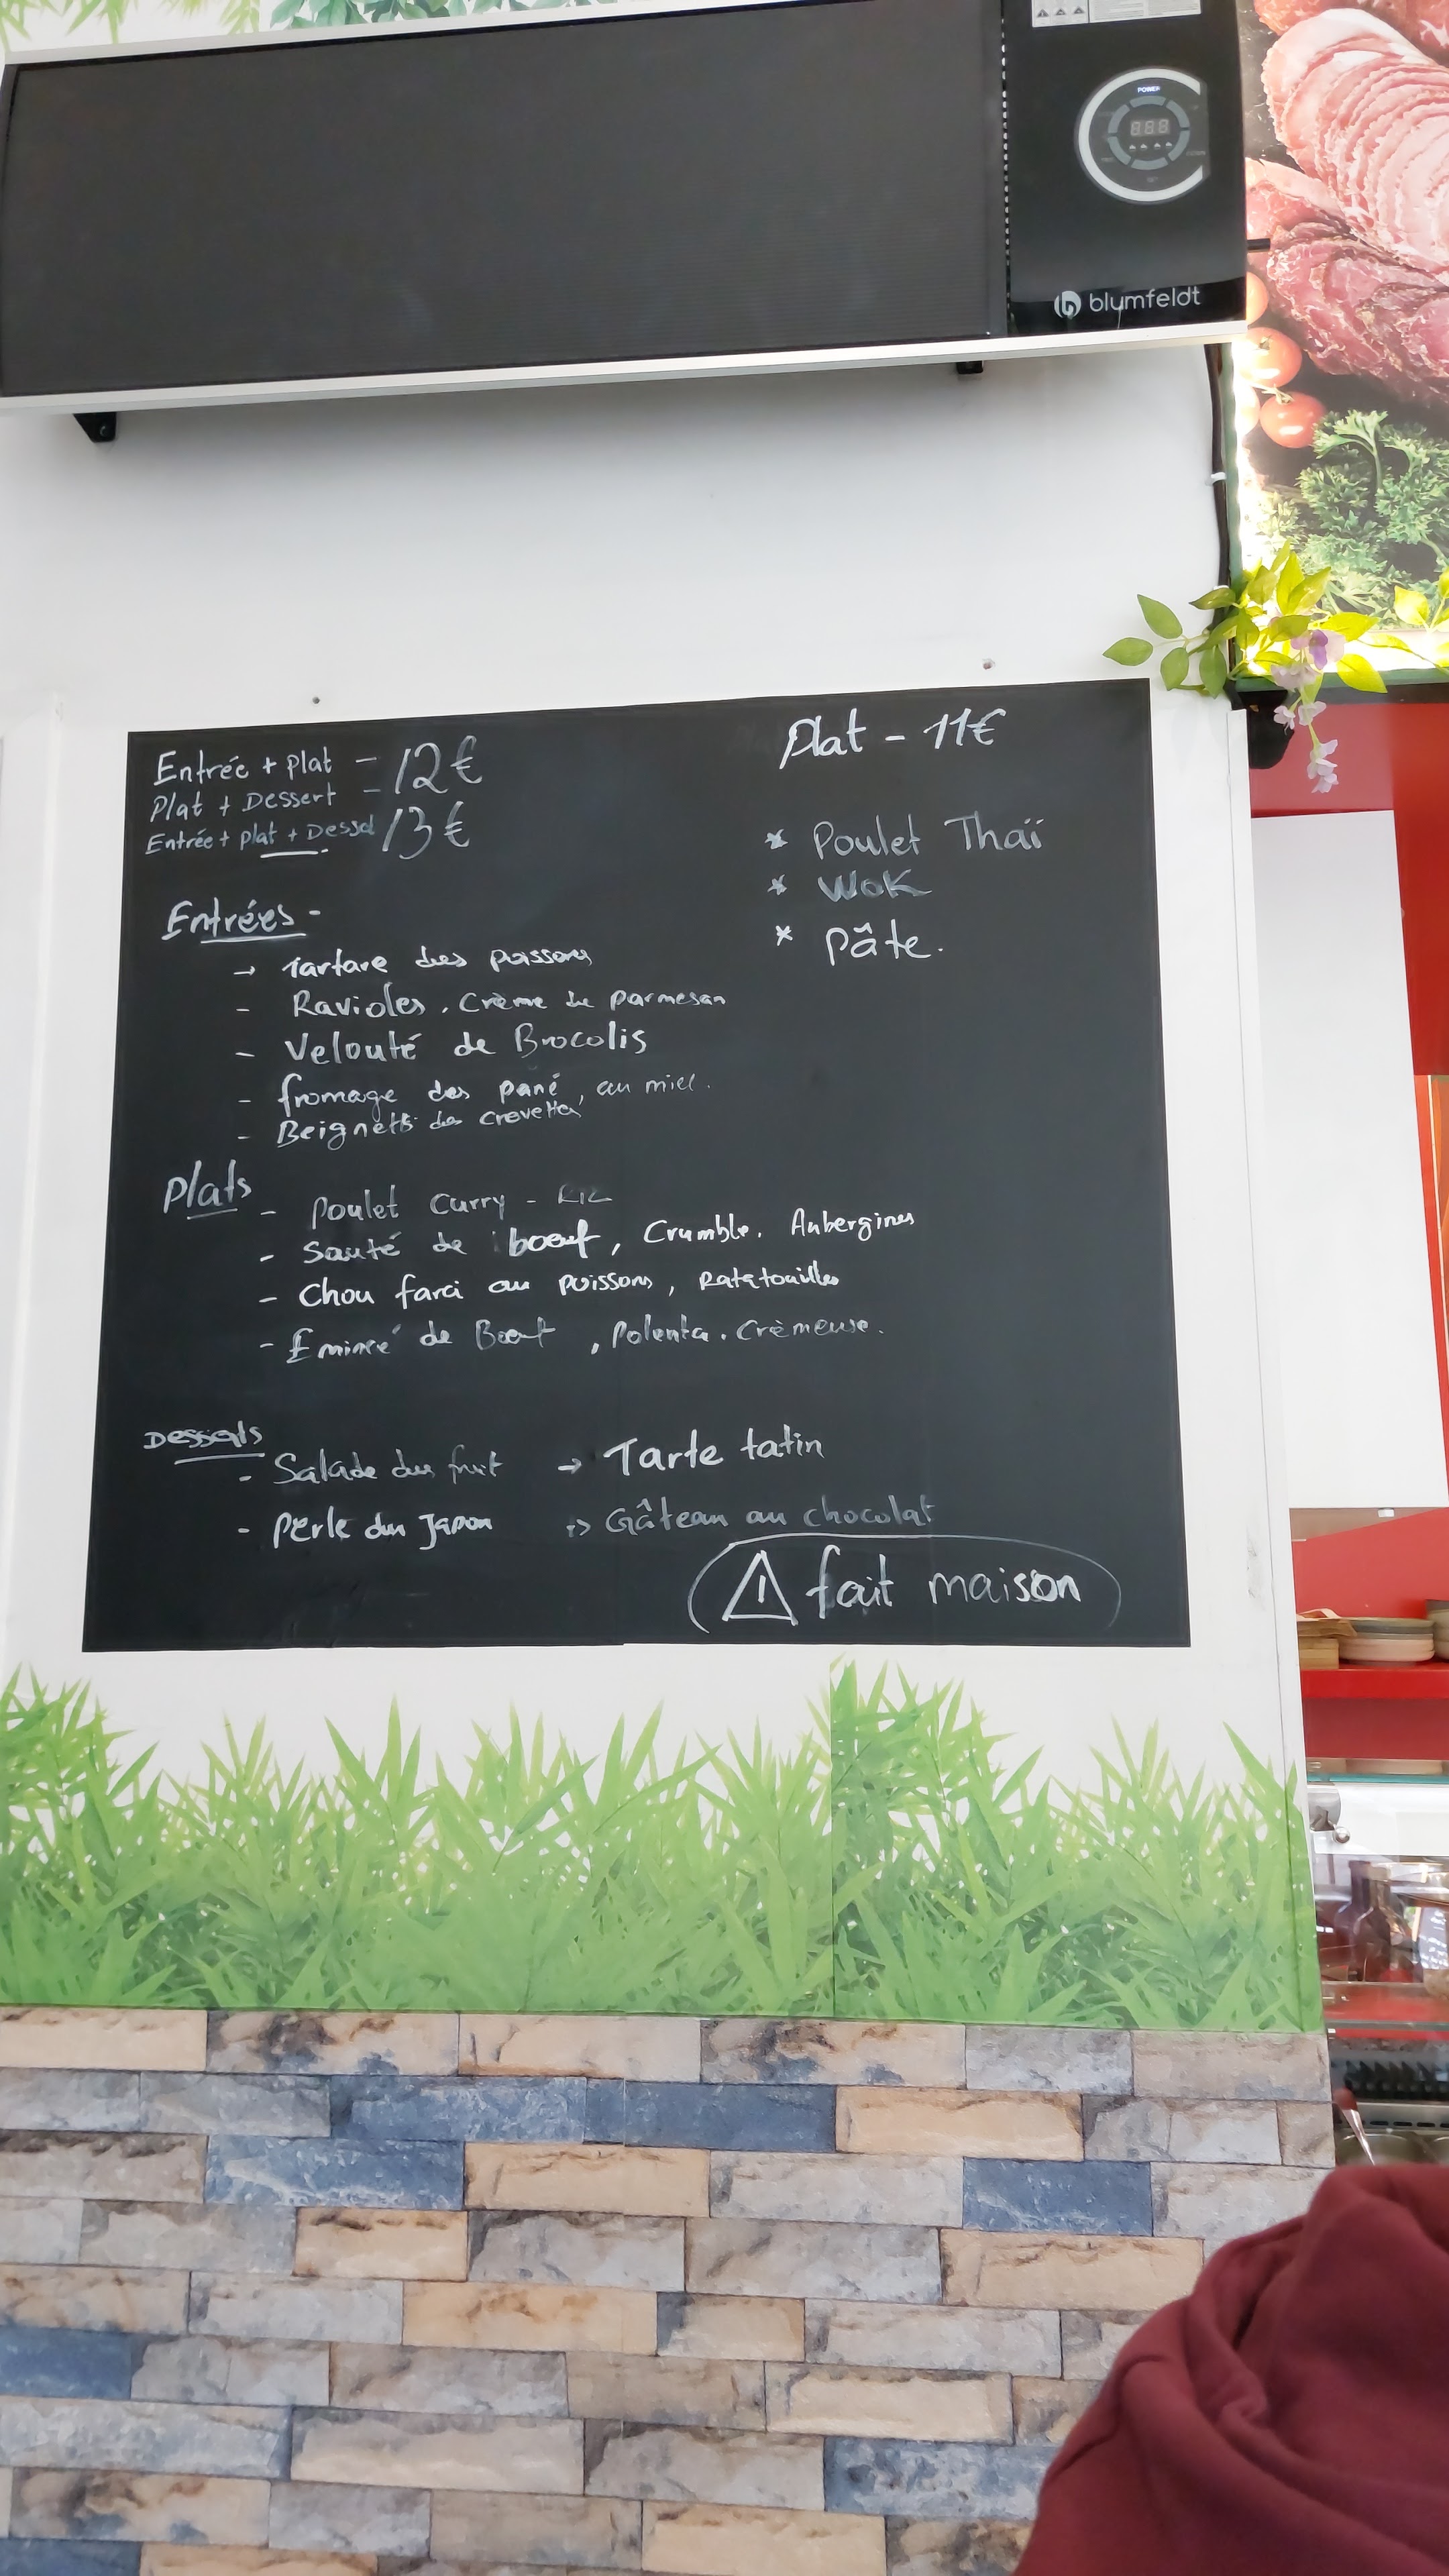 POWER
blumfeldt
Entrée + plat - 12€
Plat + Dessert -
Entrée + plat + Dessel 13€
Entrées -
→ Tartare des poissons
- Ravioles . Crème de parmesan
- Velouté de Brocolis
- fromage des pané, au miel.
- Beignets des crevettes
Plats
- Poulet Curry - Riz
- Sauté de boeuf, Crumble. Aubergines
- Chou farci au poissons, Ratatouilles
- Emincé de Boeuf , Polenta . Crèmeuse.
Desserts
- Salade du fruit → Tarte tatin
- Perle du Japon -> Gâteau au chocolat
⚠ fait maison
Plat - 11€
* Poulet Thaï
* Wok
* Pâte.